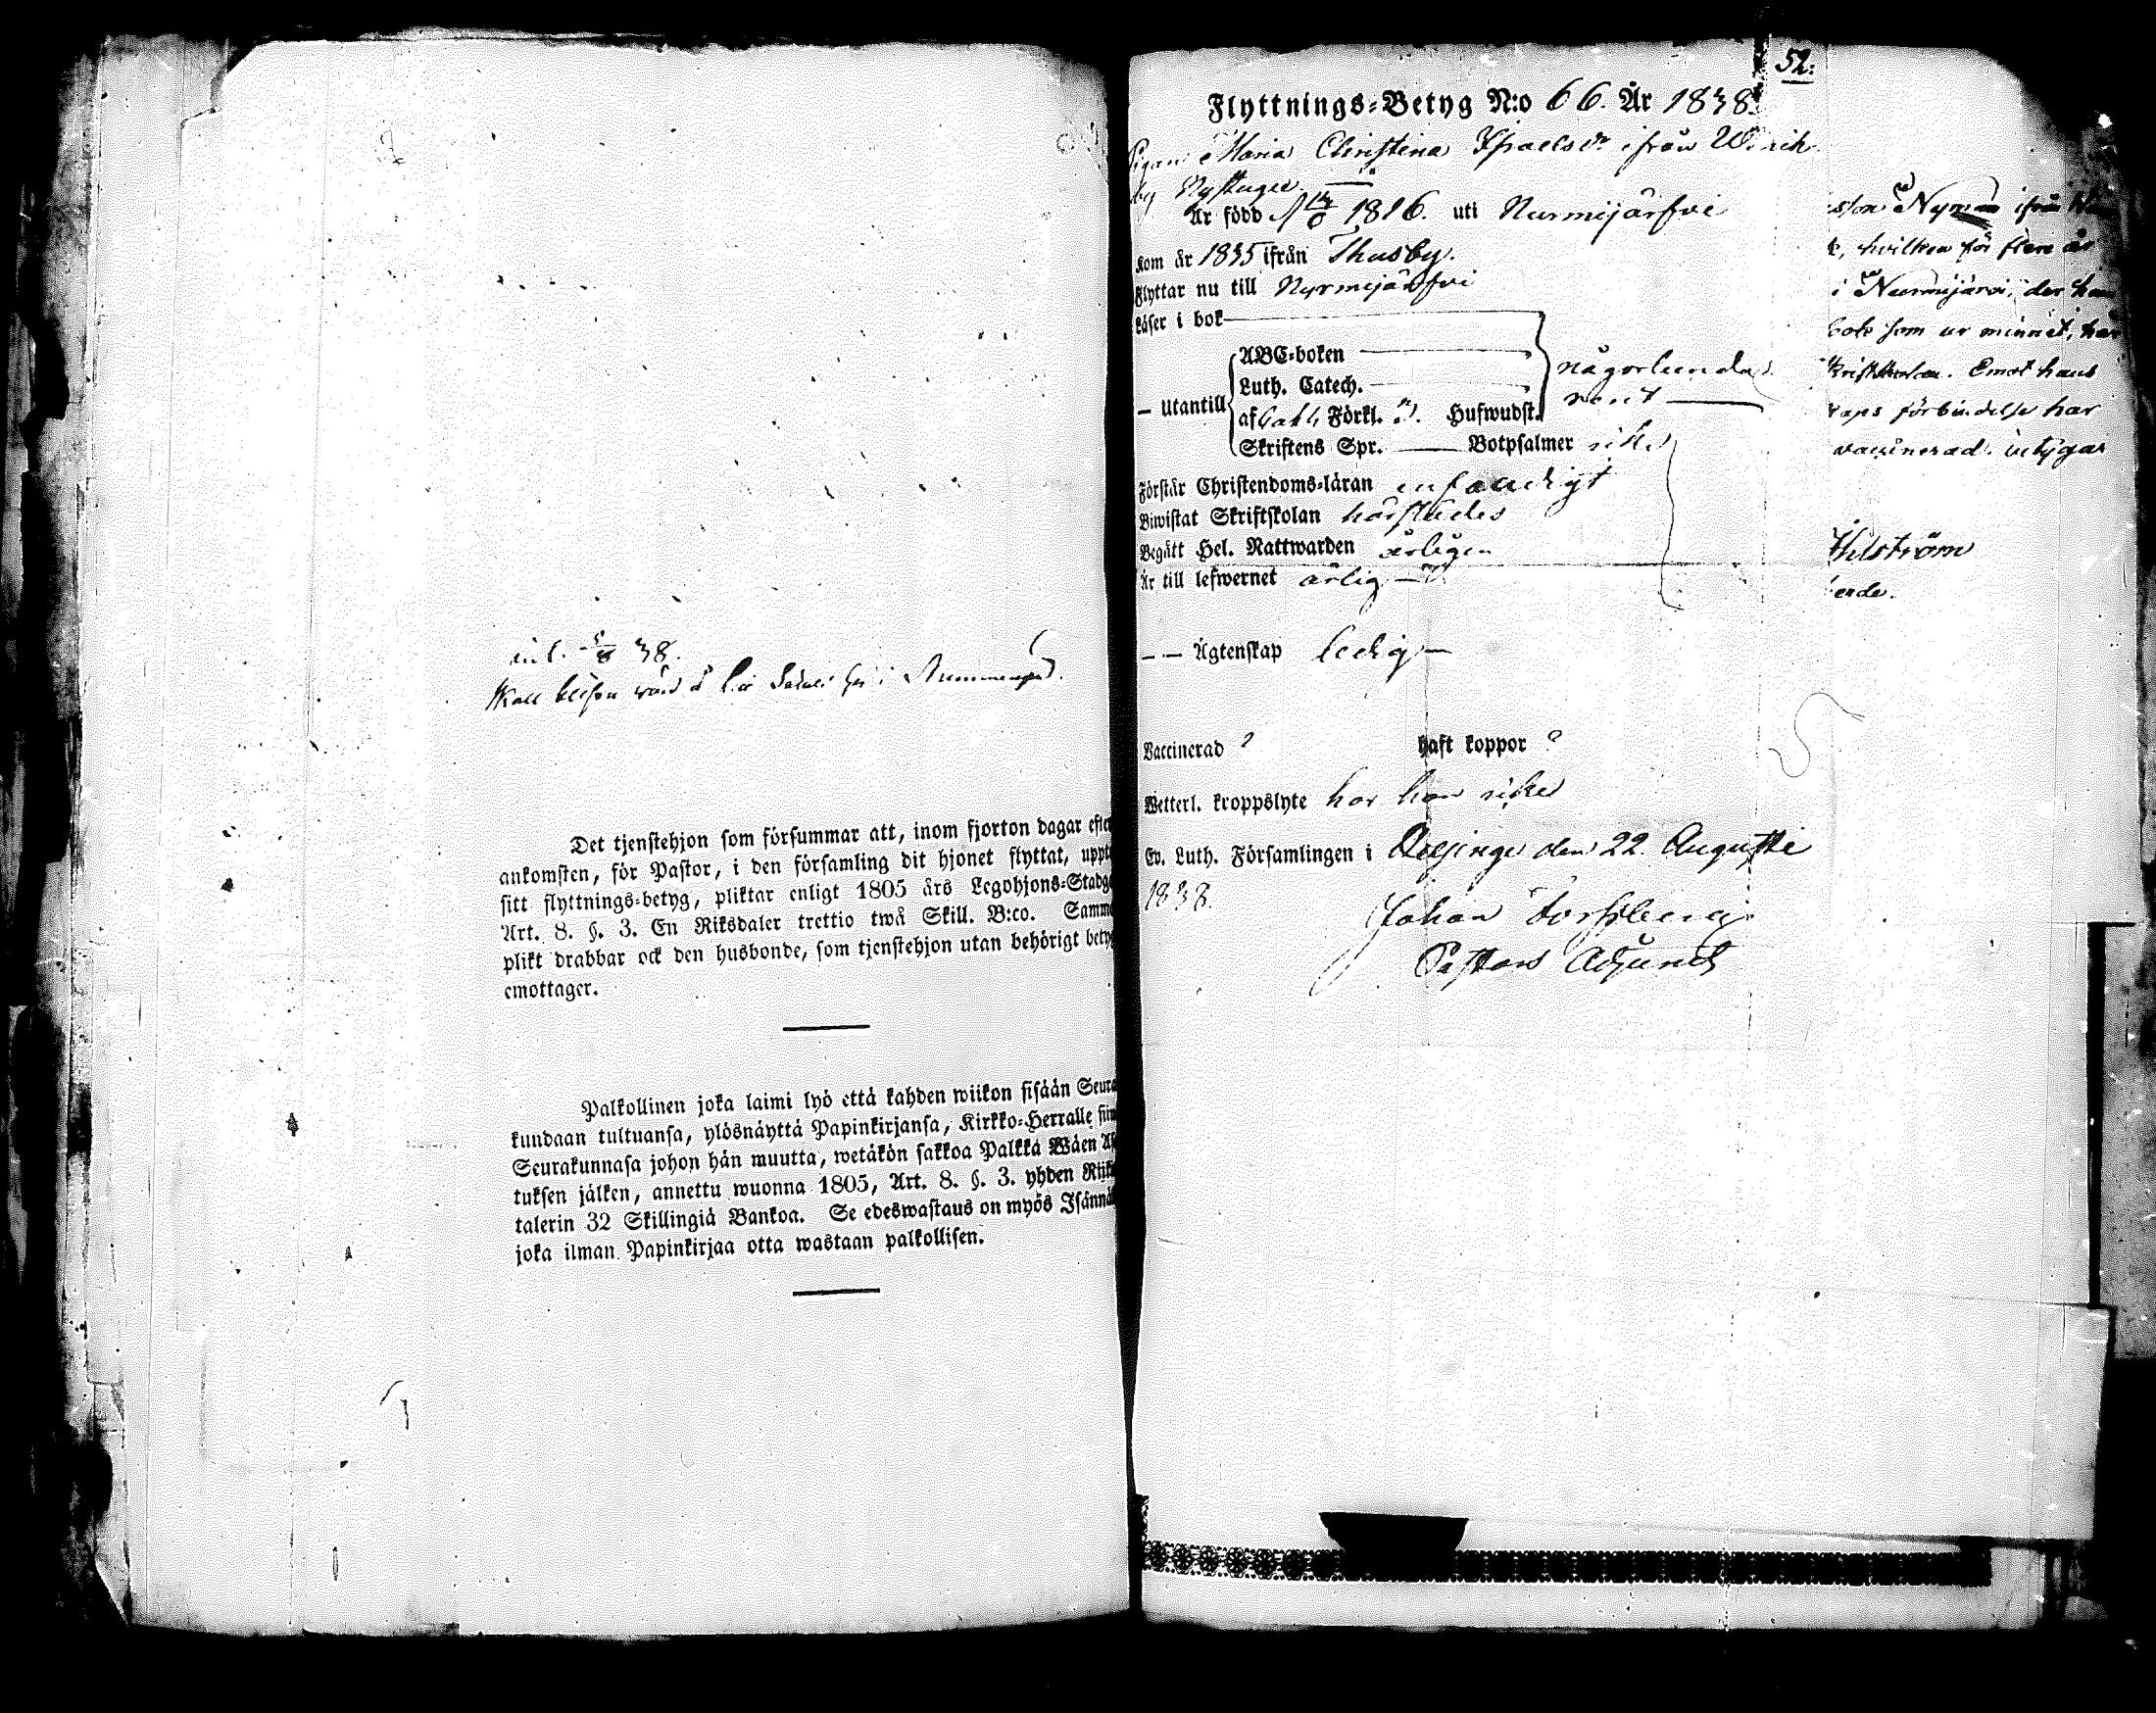 inl. 5/8 38.
Skall blifva
Det tjenstehjon som försummar att, inom fjorton dagar efter
ankomsten, för Pastor, i den församling dit hjonet flyttat, uppte
sitt flyttnings-betyg, pliktar enligt 1805 års Legohjons-Stadga
Art. 8. §. 3. En Riksdaler trettio twå Skill. B:co. Samma
plikt drabbar ock den husbonde, som tjenstehjon utan behörigt betyg
emottager.
Palkollinen joka laimi lyö että kahden wiikon sisään Seura-
kundaan tultuansa, ylösnäyttä Papinkirjansa, Kirkko-Herralle siin
Seurakunnasa johon hän muutta, wetäkön sakkoa Palkka Wäen As
tuksen jälken, annettu wuonna 1805, Art. 8. §. 3. yhden Riik
talerin 32 Skillingiä Bankoa. Se edeswastaus on myös Isännä
joka ilman Papinkirjaa otta wastaan palkollisen.
52.
Flyttnings-Betyg N:o 66. År 1838.
Pigan Maria Christina Israelsdr ifrån
by Nystuga
Är född 1816. uti Nurmijärfvi
Kom år 1835 ifrån Thusby.
Flyttar nu till Nurmijärfvi
Läser i bok
ABC-boken
Luth. Catech. någorlunda
— Utantill af Förkl. Hufwudst. rent
Skriftens Spr. — Botpsalmer icke
Förstår Christendoms-läran enfaldigt
Biwistat Skriftskolan härstädes
Begått Hel. Nattwarden årligen
Är till lefwernet ärlig
— — Ägtenskap ledig
Vaccinerad ? haft koppor ?
Wetterl. kroppslyte har hon icke
Ev. Luth. Församlingen i Helsinge den 22 Augusti
1838.
Johan Forssberg
Pastors Adjunct
sson Nyman ifrån
k, hvilken för flere år
i Nurmijärvi, der han
bok som ur minnet, har
Skriftskolan. Emot hans
skaps förbindelse har
vaccinerad. betygar
Ahlström